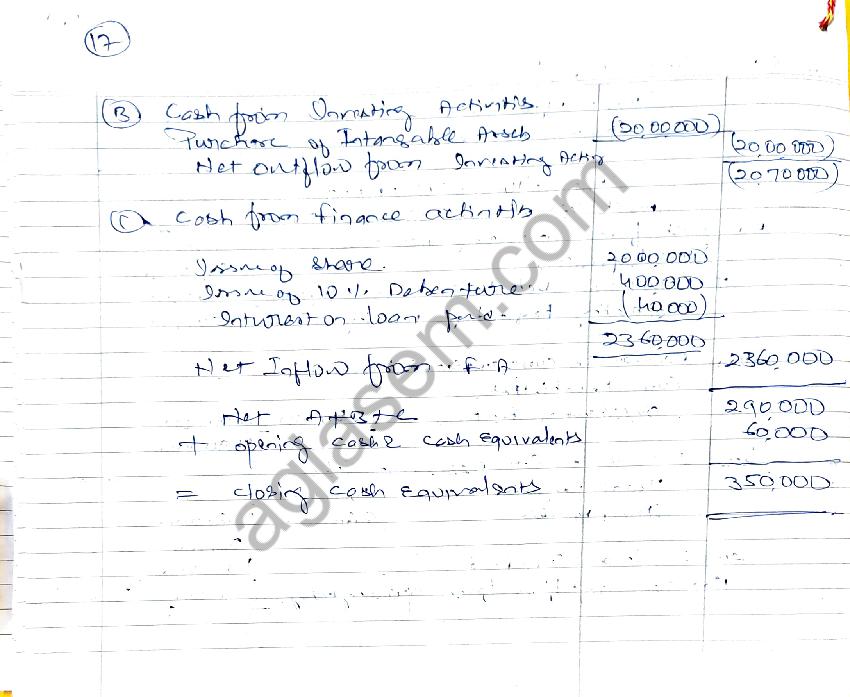 17
(B) Cash from Investing Activities
Purchase of Intangable Assets (20,00,000)
Net outflow from Investing Activ (20,00,000)
(20,70,000)
(C) Cash from finance activities
Issue of share 2000,000
Issue of 10% Debenture 400,000
Interest on loan paid (40,000)
2360,000
Net Inflow from F.A 2360,000
Net A+B+C 290,000
+ opening cash & cash equivalents 60,000
= closing cash equivalents 350,000
aglasem.com